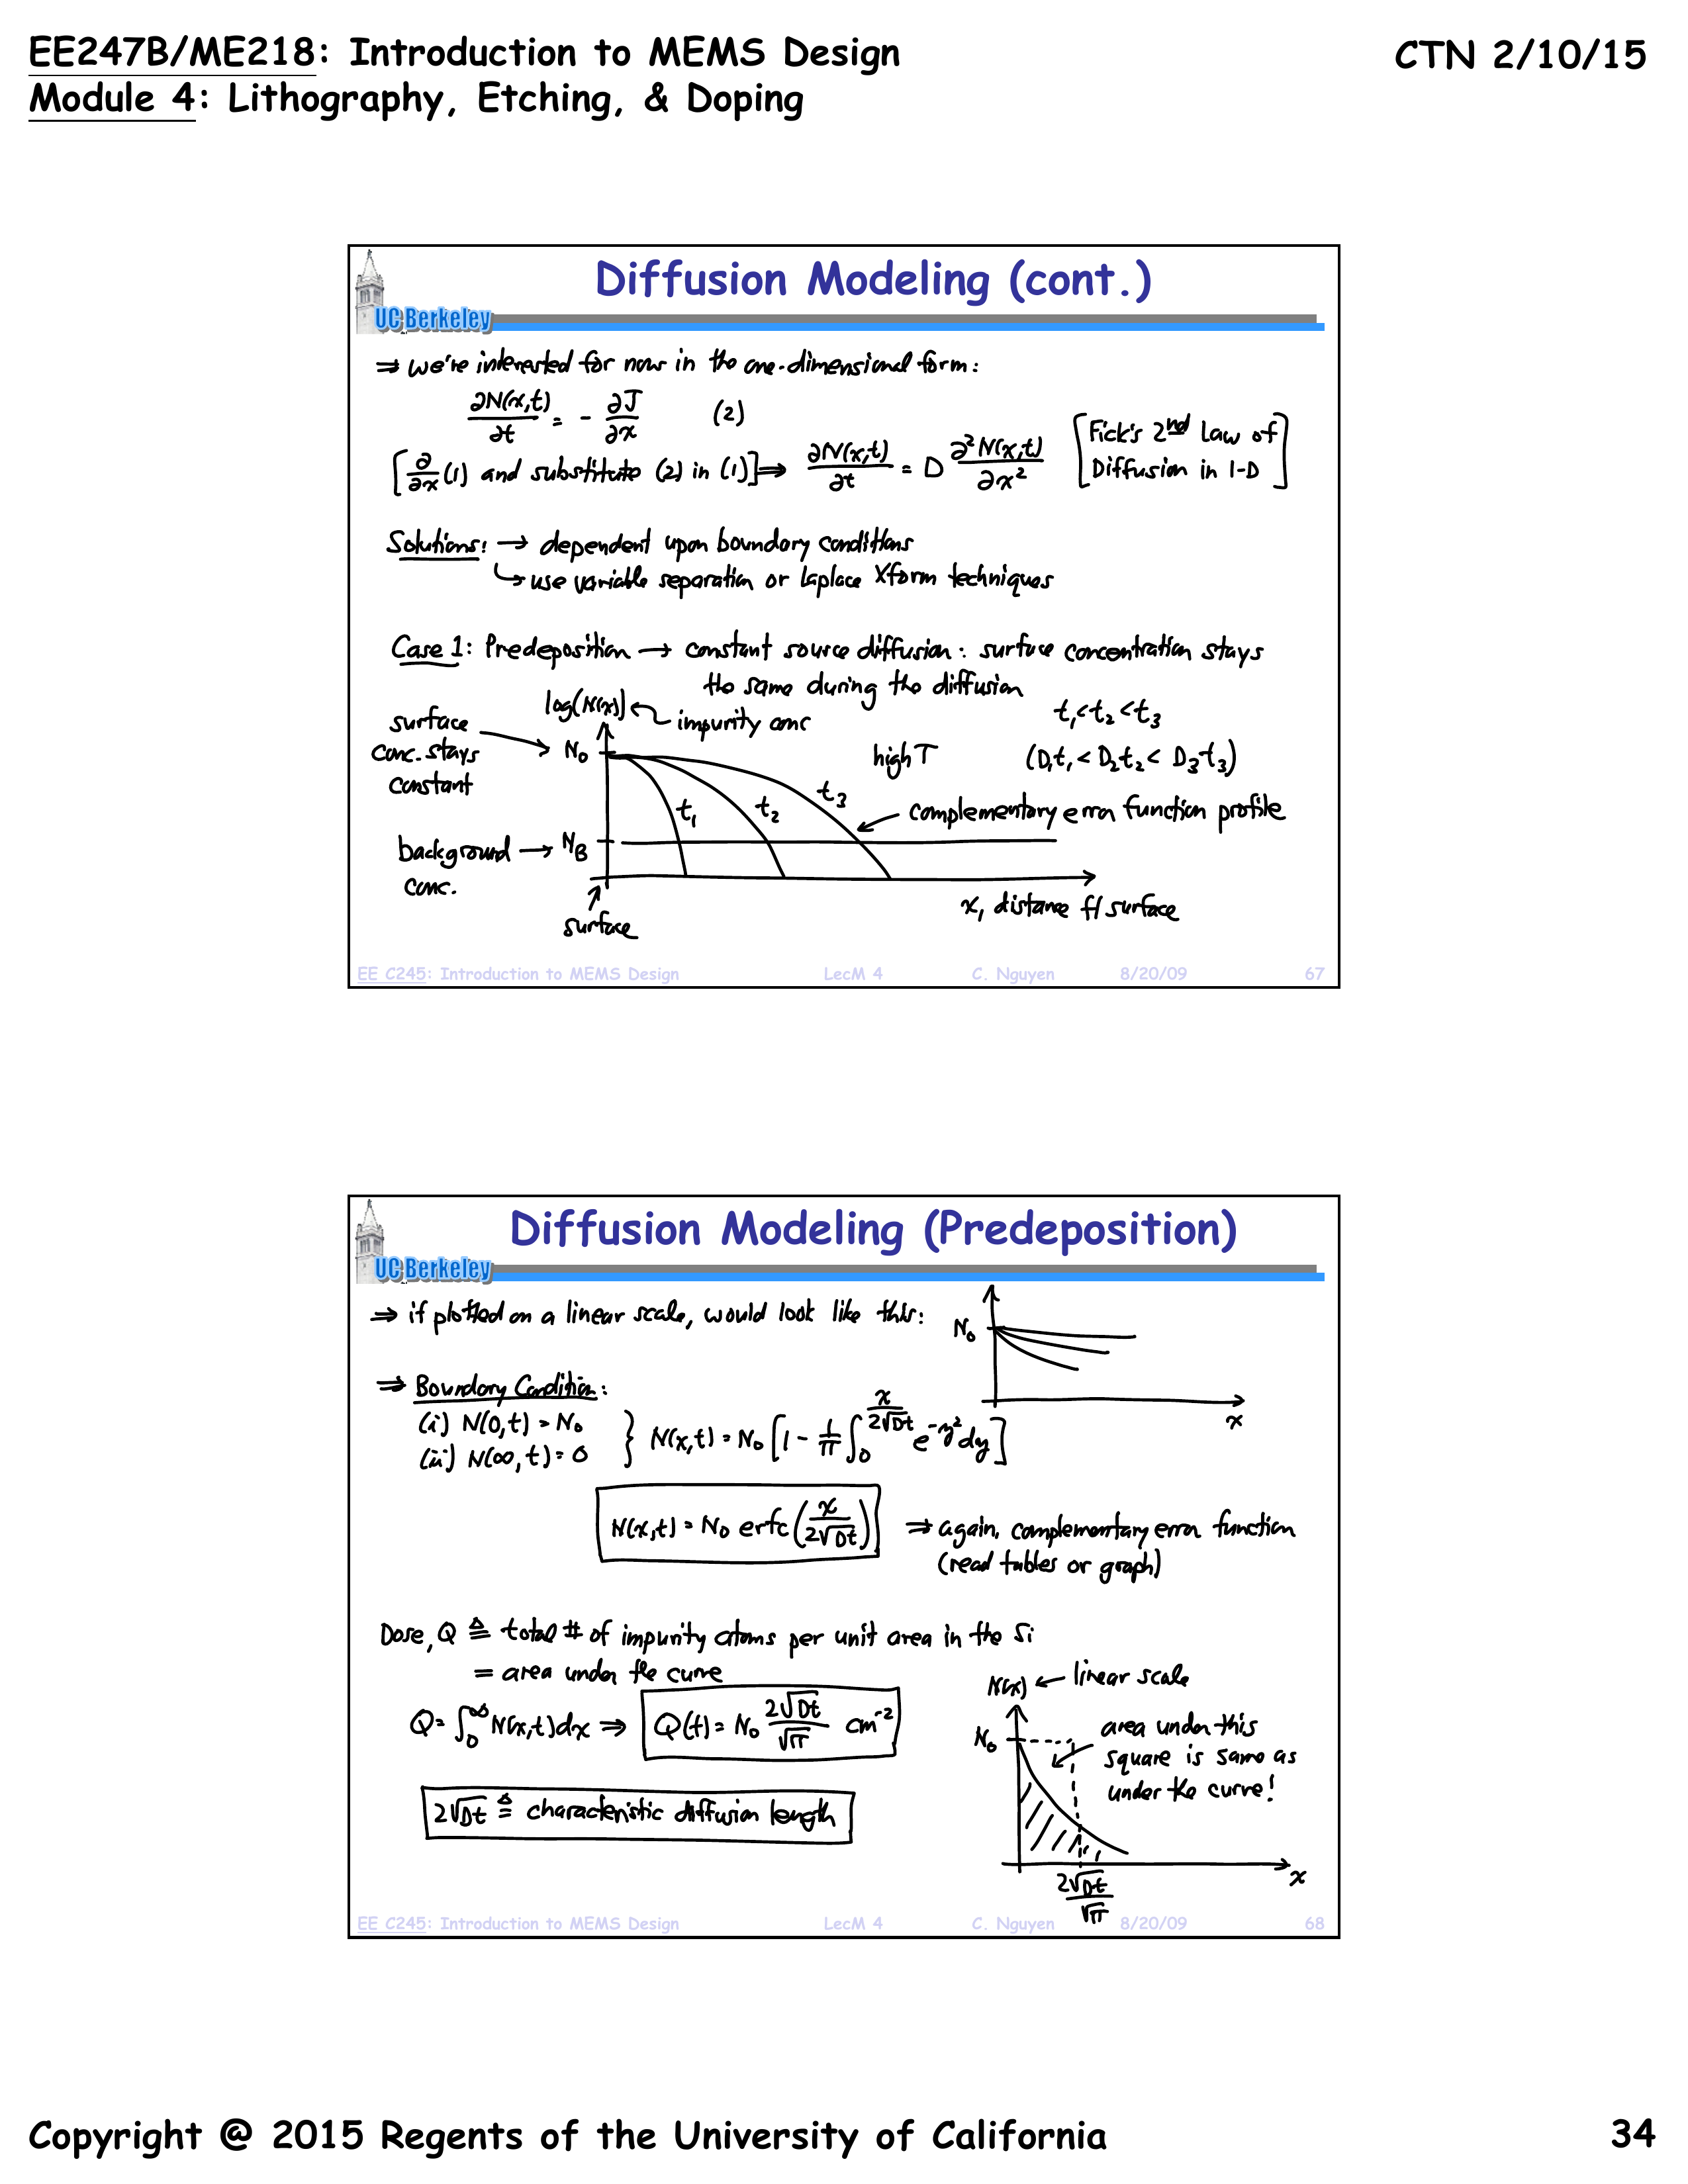 EE247B/ME218: Introduction to MEMS Design
CTN 2/10/15
Module 4: Lithography, Etching, & Doping
Diffusion Modeling (cont.)
UC Berkeley
⇒ we're interested for now in the one-dimensional form:
∂N(x,t)/∂t = - ∂J/∂x (2)
[∂/∂x (1) and substitute (2) in (1)] ⇒ ∂N(x,t)/∂t = D ∂²N(x,t)/∂x² [Fick's 2nd Law of Diffusion in 1-D]
Solutions: → dependent upon boundary conditions
↳ use variable separation or Laplace Xform techniques
Case 1: Predeposition → constant source diffusion: surface concentration stays
the same during the diffusion
log(N(x)) ← impurity conc
t₁<t₂<t₃
surface conc. stays constant → N₀
high T
(D₁t₁ < D₂t₂ < D₃t₃)
t₁ t₂ t₃
← complementary error function profile
background conc. → N_B
x, distance f/ surface
surface
EE C245: Introduction to MEMS Design LecM 4 C. Nguyen 8/20/09 67
Diffusion Modeling (Predeposition)
UC Berkeley
⇒ if plotted on a linear scale, would look like this:
N₀
x
⇒ Boundary Condition:
(i) N(0,t) = N₀
(ii) N(∞,t) = 0
} N(x,t) = N₀ [1 - 1/π ∫₀^(x/2√Dt) e^(-y²) dy]
N(x,t) = N₀ erfc(x/2√Dt) ⇒ again, complementary error function
(read tables or graph)
Dose, Q ≜ total # of impurity atoms per unit area in the Si
= area under the curve
Q = ∫₀^∞ N(x,t)dx ⇒ Q(t) = N₀ 2√Dt/√π cm⁻²
2√Dt ≜ characteristic diffusion length
N(x) ← linear scale
N₀
area under this
square is same as
under the curve!
x
2√Dt/√π
EE C245: Introduction to MEMS Design LecM 4 C. Nguyen 8/20/09 68
Copyright @ 2015 Regents of the University of California
34